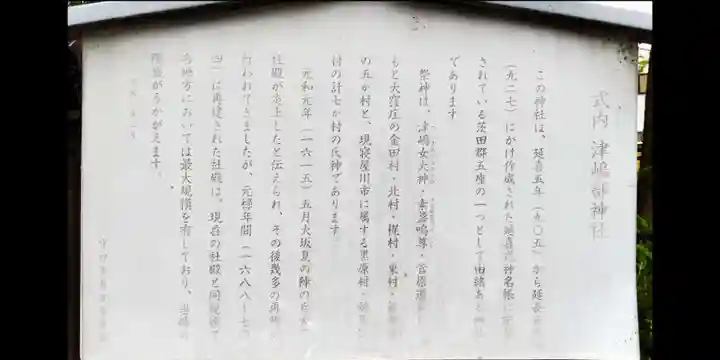 式内 津嶋部神社
この神社は、延喜五年(九〇五)から延長
(九二七)にかけ作成された延喜式神名帳に
されている茨田郡五座の一つとして由緒ある
であります
祭神は、津嶋女大神・素盞嗚尊・菅原道
もと大窪庄の金田村・北村・梶村・東村・
の五か村と、現寝屋川市に属する黒原村・
村の計七か村の氏神であります。
元和元年(一六一五)五月大坂夏の陣の
社殿が炎上したと伝えられ、その後幾多の再
行われてきましたが、元禄年間(一六八八〜七
四)に再建された社殿は、現在の社殿と同規模で
当地方においては最大規模を有しており、当時の
隆盛がうかがえます。
守口市教育委員会